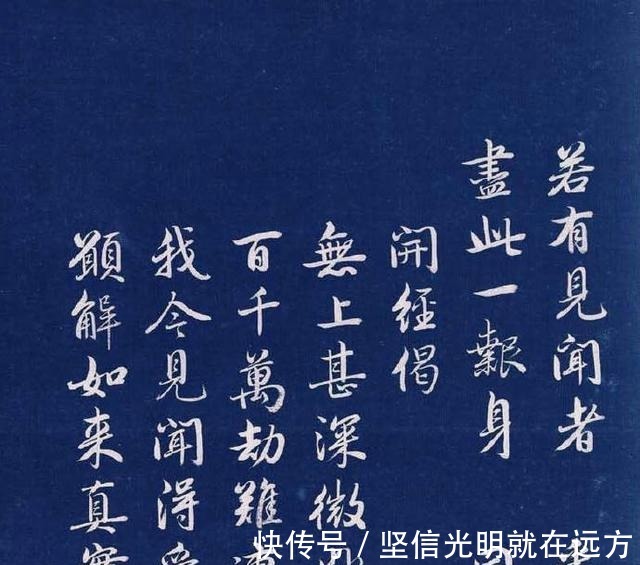 若有見聞者
盡此一報身
開經偈
無上甚深微
百千萬劫難
我今見聞得
願解如来真
快传号 / 坚信光明就在远方